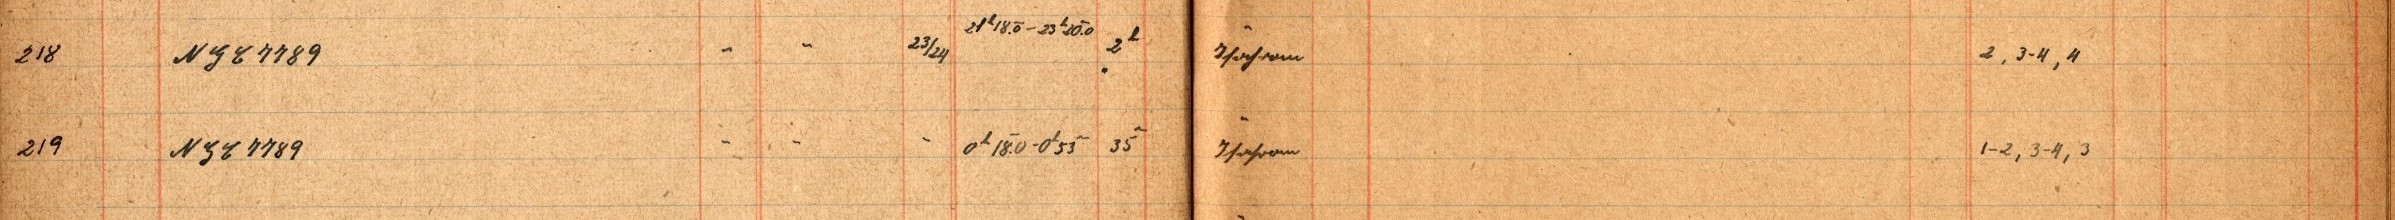 218 NGC 7789 " " 23/24 21ʰ18.0 – 23ʰ20.0 2ʰ " 2, 3-4, 4
219 NGC 7789 " " " 0ʰ18.0 - 0ʰ53ᵐ 35ᵐ " 1-2, 3-4, 3